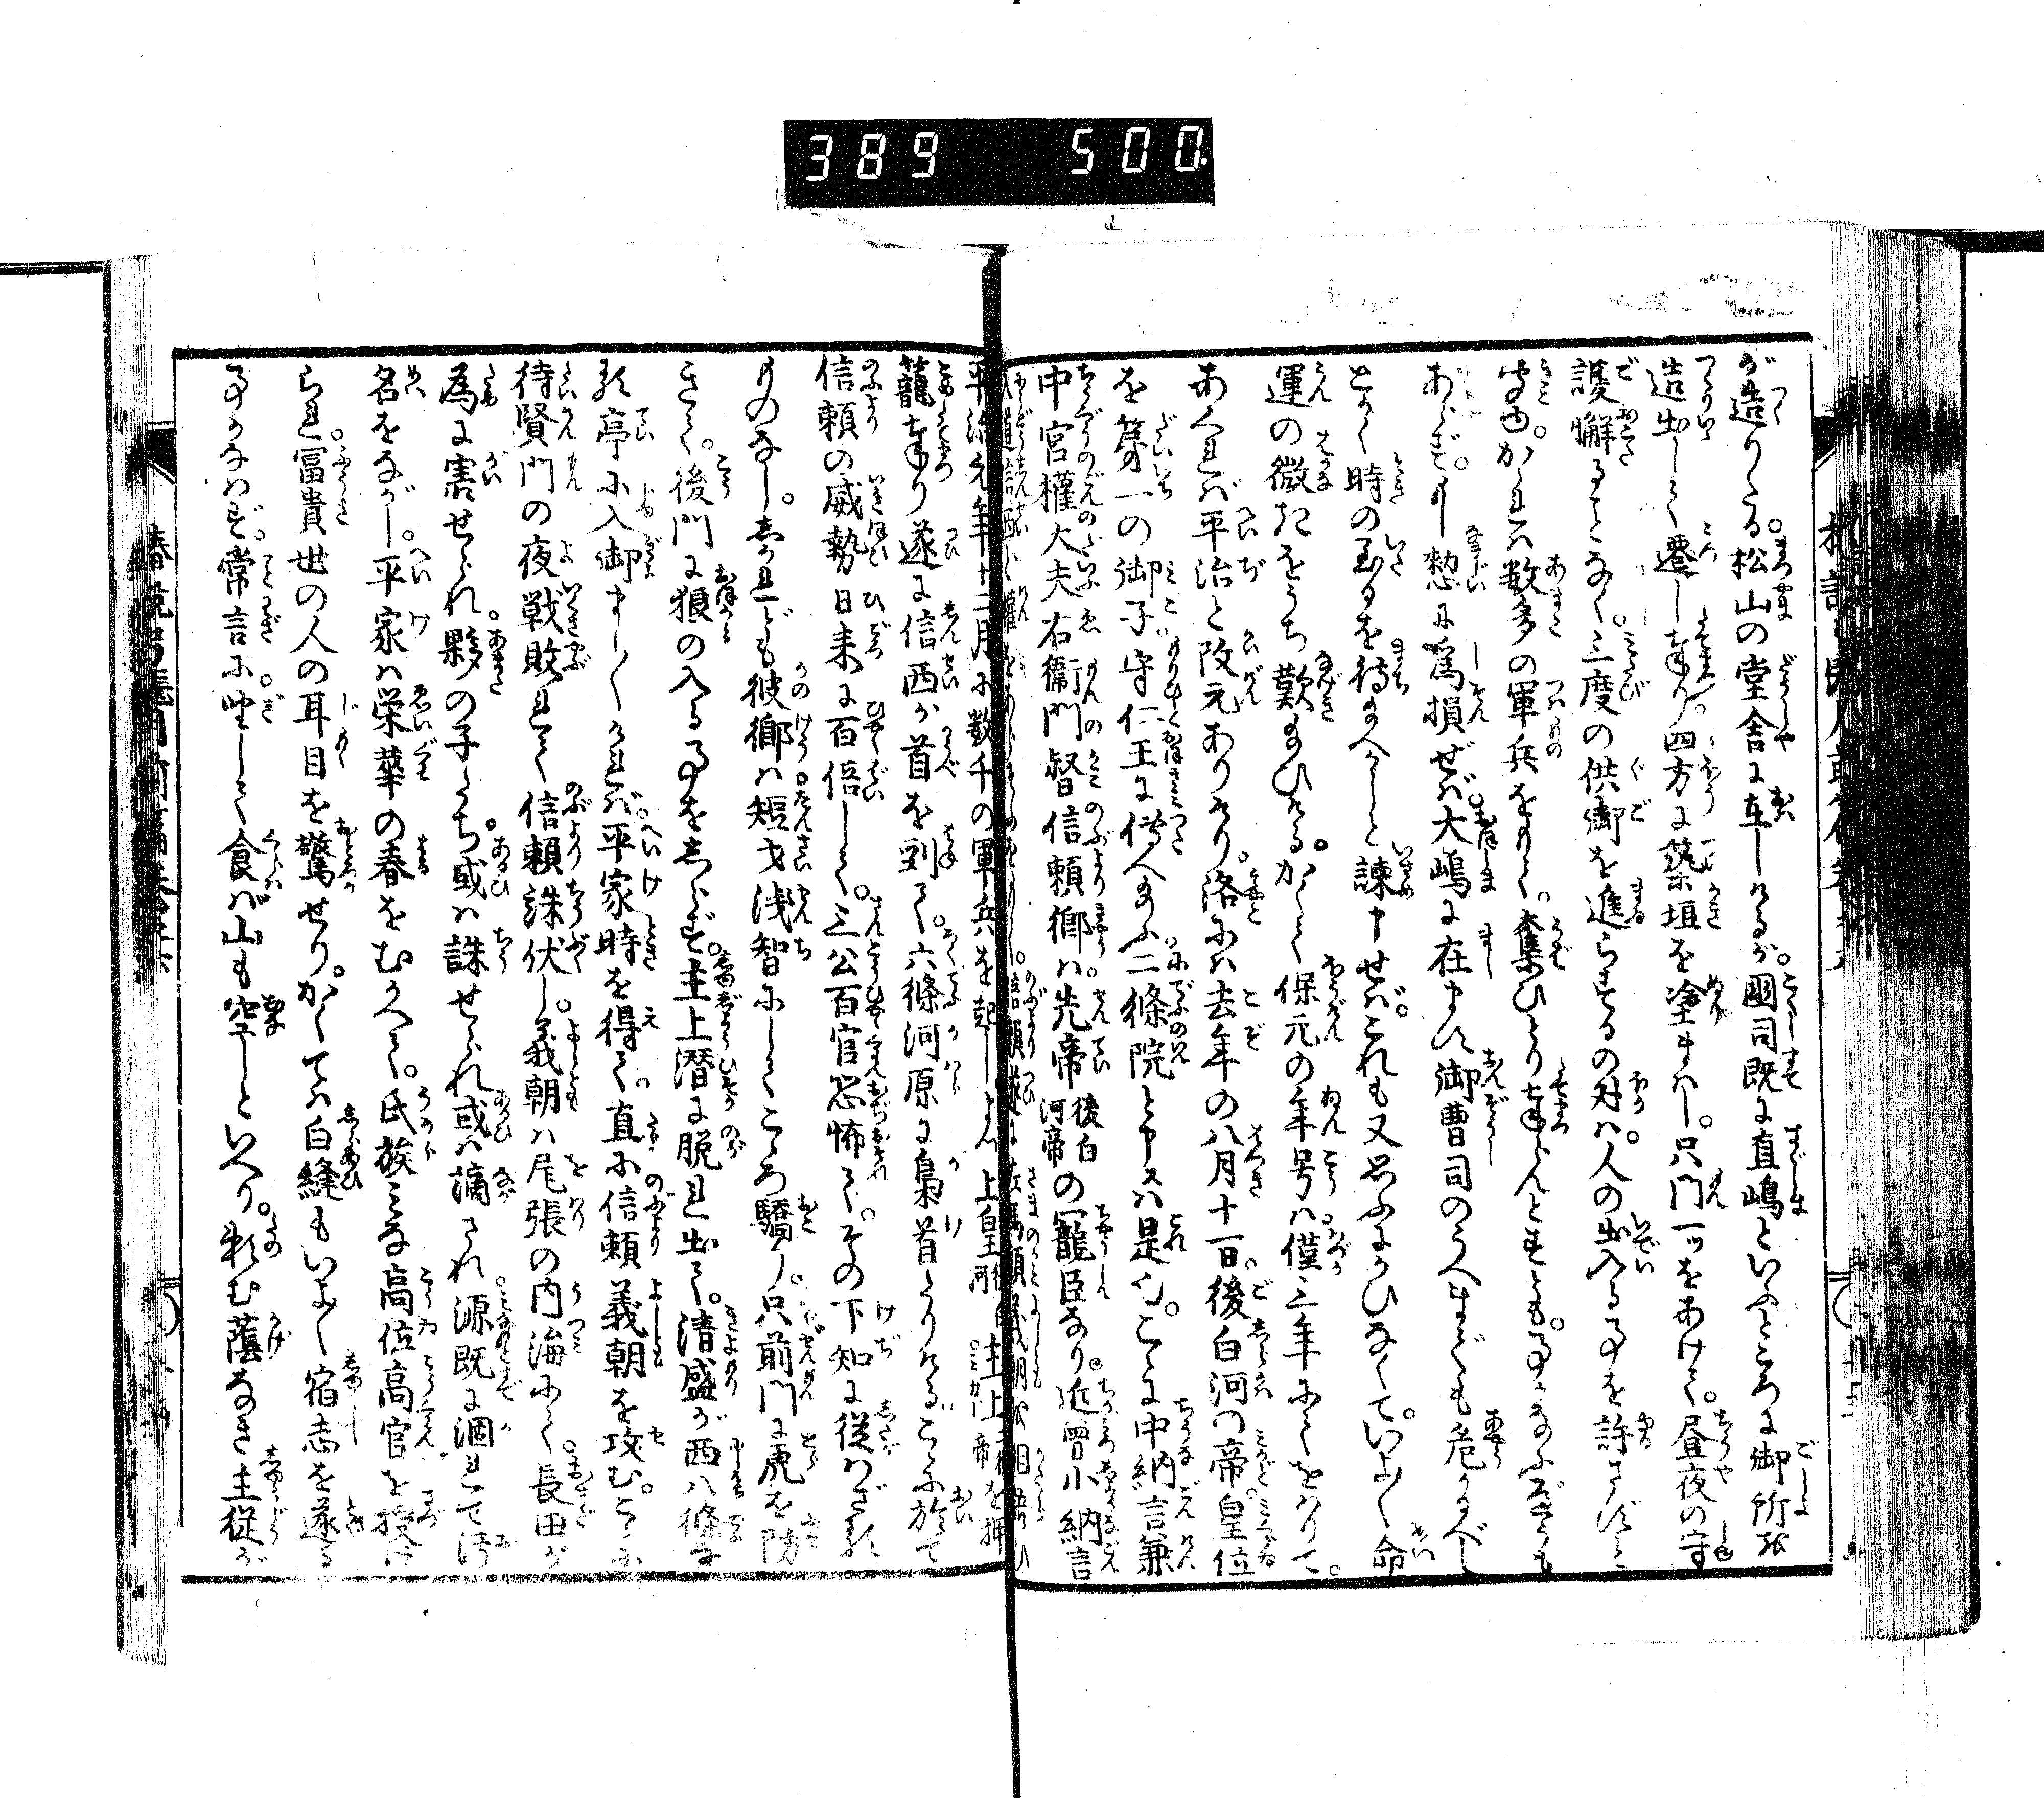 389 500.
が造りたる。松山の堂舎に在しけるが。國司既に直嶋といふところに御所を
造出しく遷し奉り。四方に築垣を塗まはし。只門一ッをあけて。昼夜の守
護懈ることなく。三度の供御を進らするの外は。人の出入る事を許さずと
聞ゆ。かゝれば数多の軍兵をもて。奪ひとり奉らんとすとも。事かなふべうも
あらず。もし愁に為損ぜば大嶋に在ます御曹司のうへまでも危かるべし
とかく時の到るを待給へかしと諫申せば。これも又思ふかひなくて。いよ〳〵命
運の微きをうち歎給ひける。かくて保元の年号は僅三年にしてをはりて。
あくれば平治と改元ありけり。洛には去年の八月十一日。後白河の帝。皇位
を第一の御子守仁王に傳へ給ふ二條院と申すは是也。こゝに中納言兼
中宮權大夫右衛門督信頼卿は。先帝後白河帝の寵臣なり。近曽小納言
入道信西と權をあらそひ。信頼遂に左馬頭義朝を相語ひ
平治元年十二月に数千の軍兵を起し。上皇後白河主上二條帝を押
籠奉り遂に信西が首を刎て。六條河原に梟首たりける。こゝに於て
信頼の威勢日来に百倍して。三公百官恐怖て。その下知に従はざる
ものなし。しかれども彼卿は短才浅智にしてこゝろ驕り。只前門に虎を防
ぎて。後門に狼の入る事をしらず。主上潜に脱れ出て。清盛が西八條の
亭に入御まし〳〵ければ。平家時を得て。直に信頼義朝を攻む。こゝに
待賢門の夜戦敗れて信頼誅伏し。義朝は尾張の内海にて。長田が
為に害せられ。夥の子たち。或は誅せられ或は謫され。源既に涸れて清
名をながし。平家は栄華の春をむかへて。氏族みな高位高官を授け
られ。冨貴世の人の耳目を驚せり。かくては白縫もいよ〳〵宿志を遂る
事かなはず。常言に坐して食ば山も空しといへり。頼む蔭なき主従が